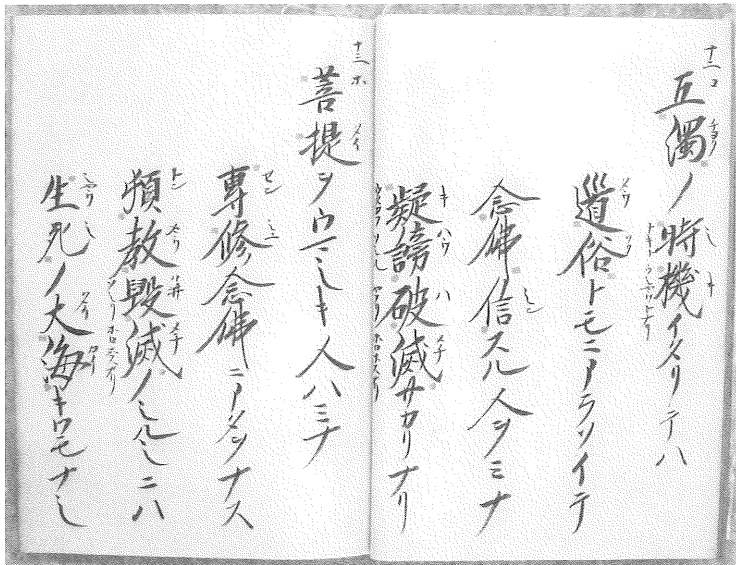 十二
五濁ノ時機イタリテハ
道俗トモニアラソイテ
念佛信スル人ヲミテ
疑謗破滅サカリナリ
十三
菩提ヲウマシキ人ハミナ
專修念佛ニアタヲナス
頓教毀滅ノシルシニハ
生死ノ大海キワモナシ